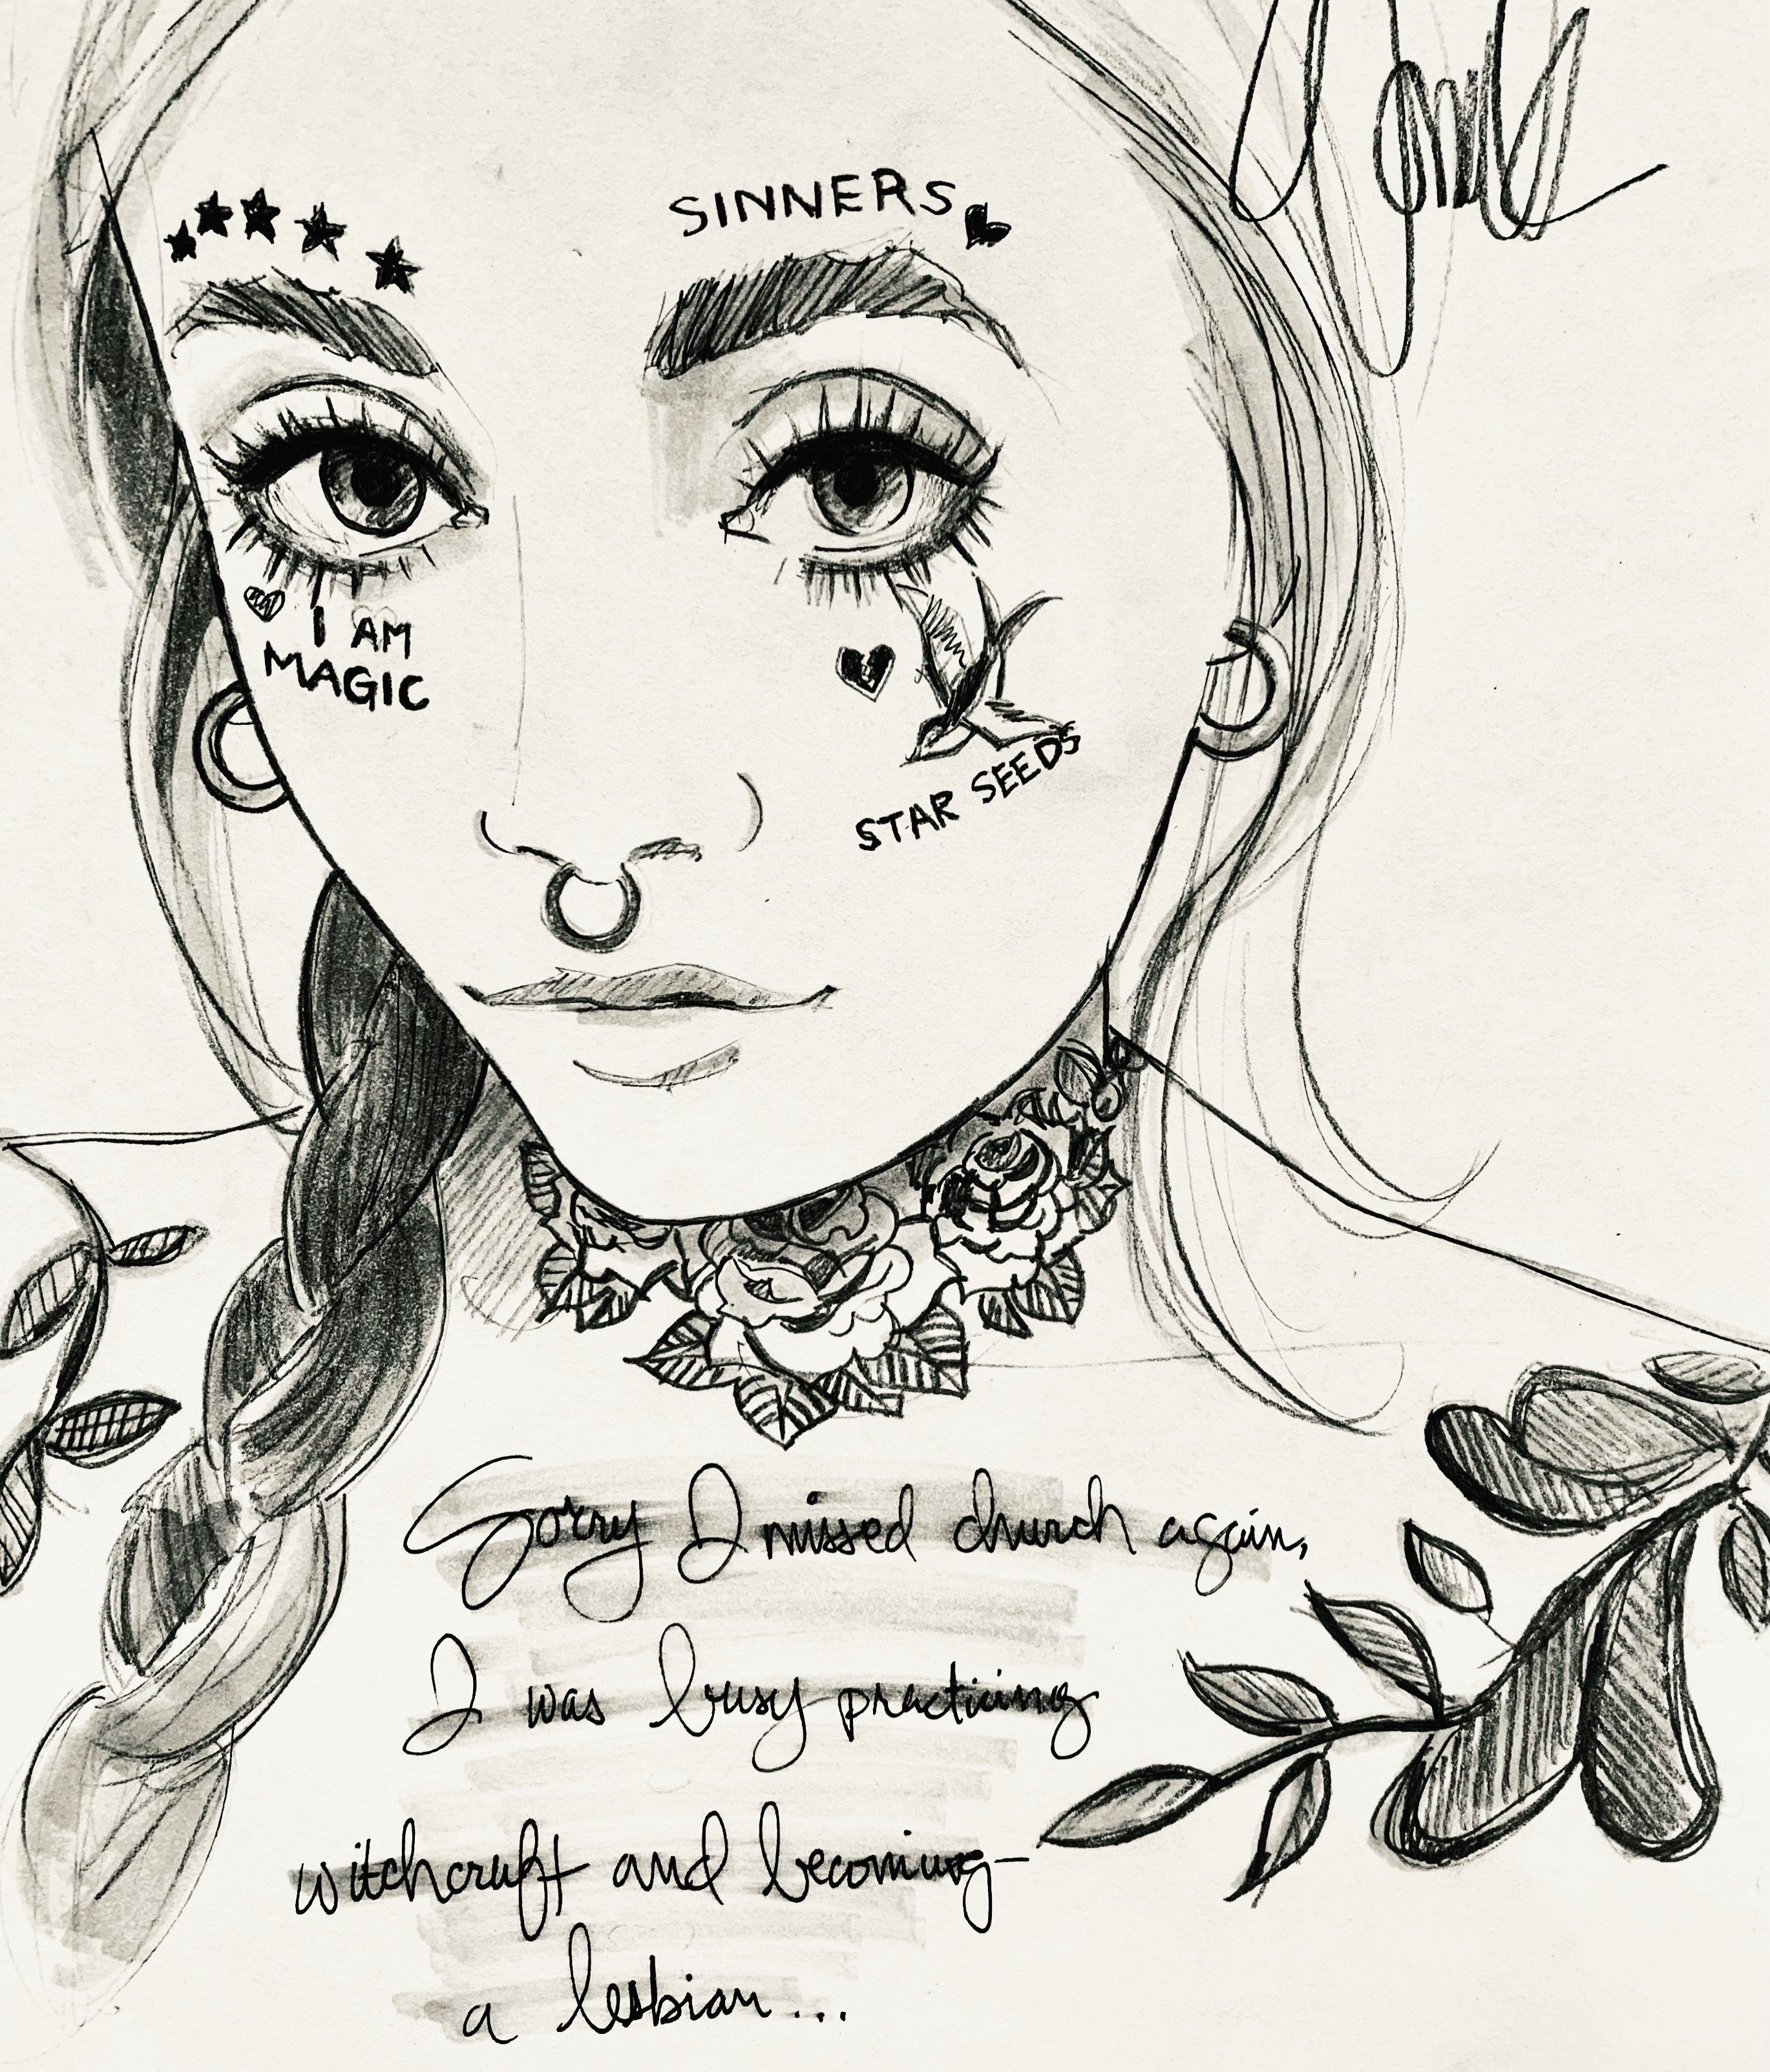 SINNERS
I AM
MAGIC
STAR SEEDS
Sorry I missed church again,
I was busy practicing
witchcraft and becoming—
a lesbian...